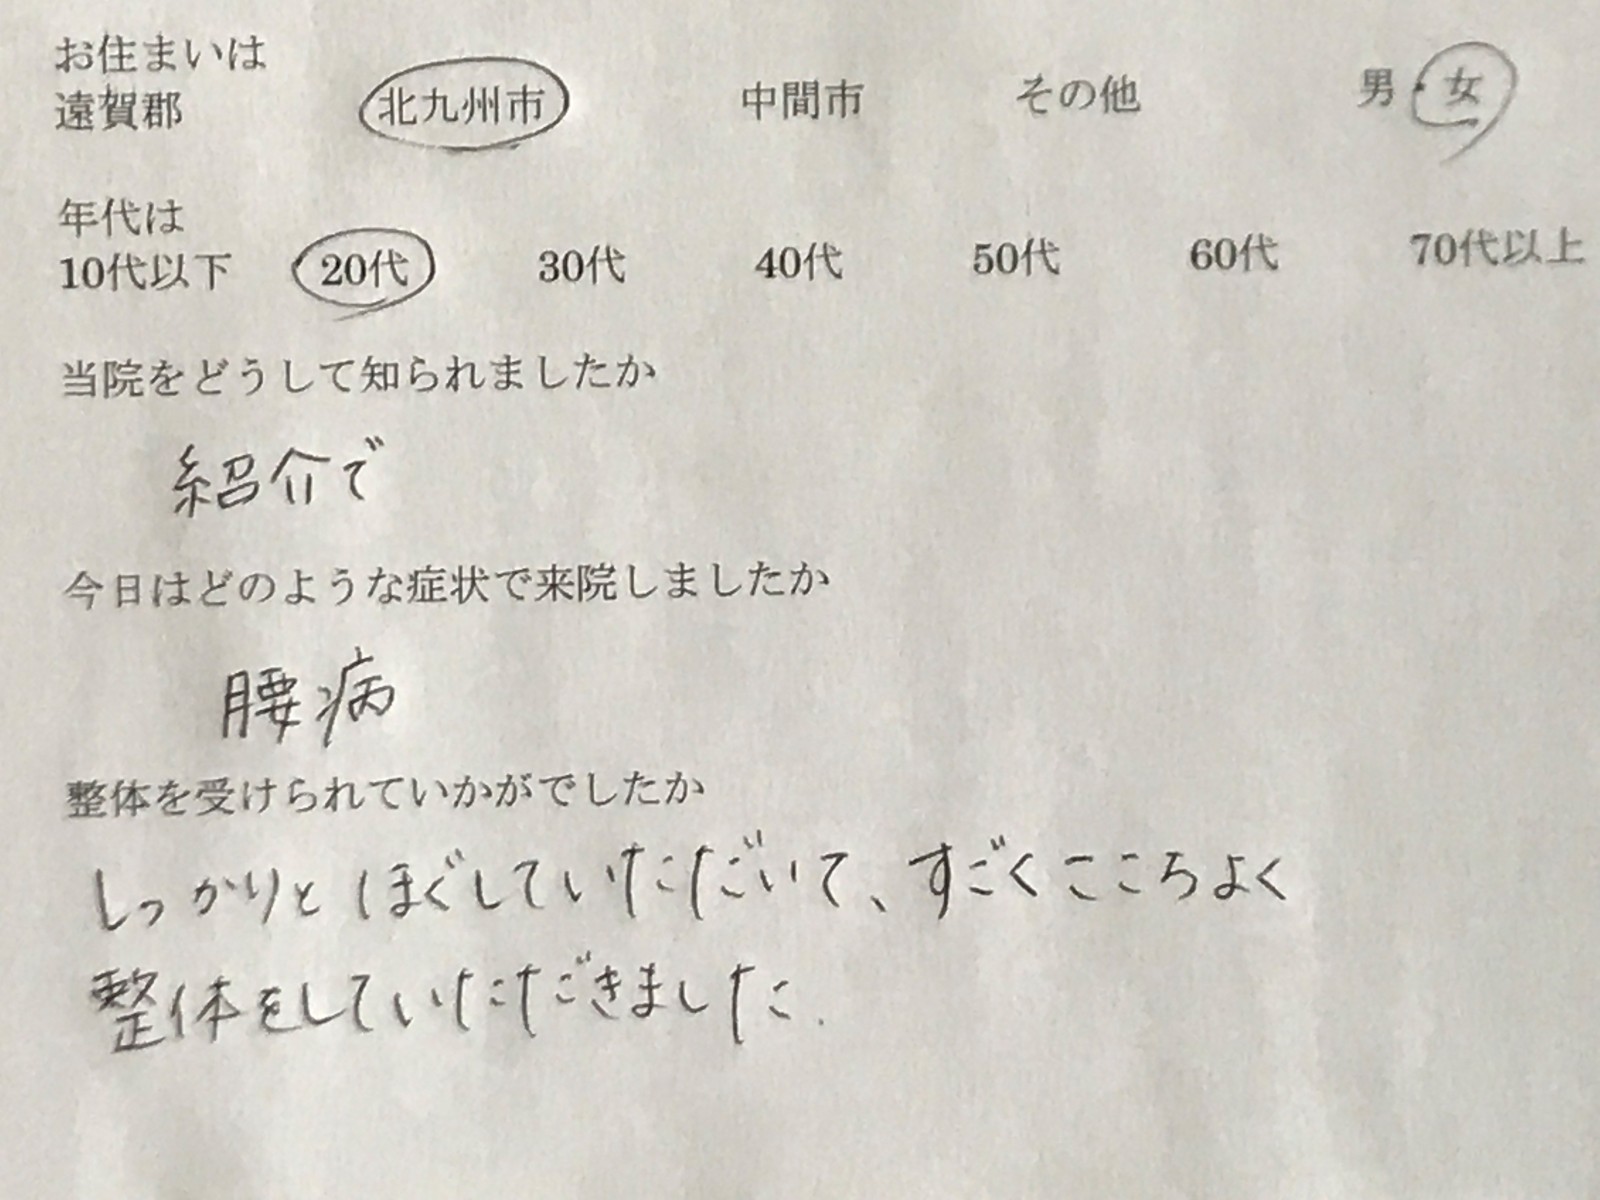 お住まいは
遠賀郡 北九州市 中間市 その他 男・女
年代は
10代以下 20代 30代 40代 50代 60代 70代以上
当院をどうして知られましたか
紹介で
今日はどのような症状で来院しましたか
腰病
整体を受けられていかがでしたか
しっかりとほぐしていただいて、すごくここちよく
整体をしていただきました.